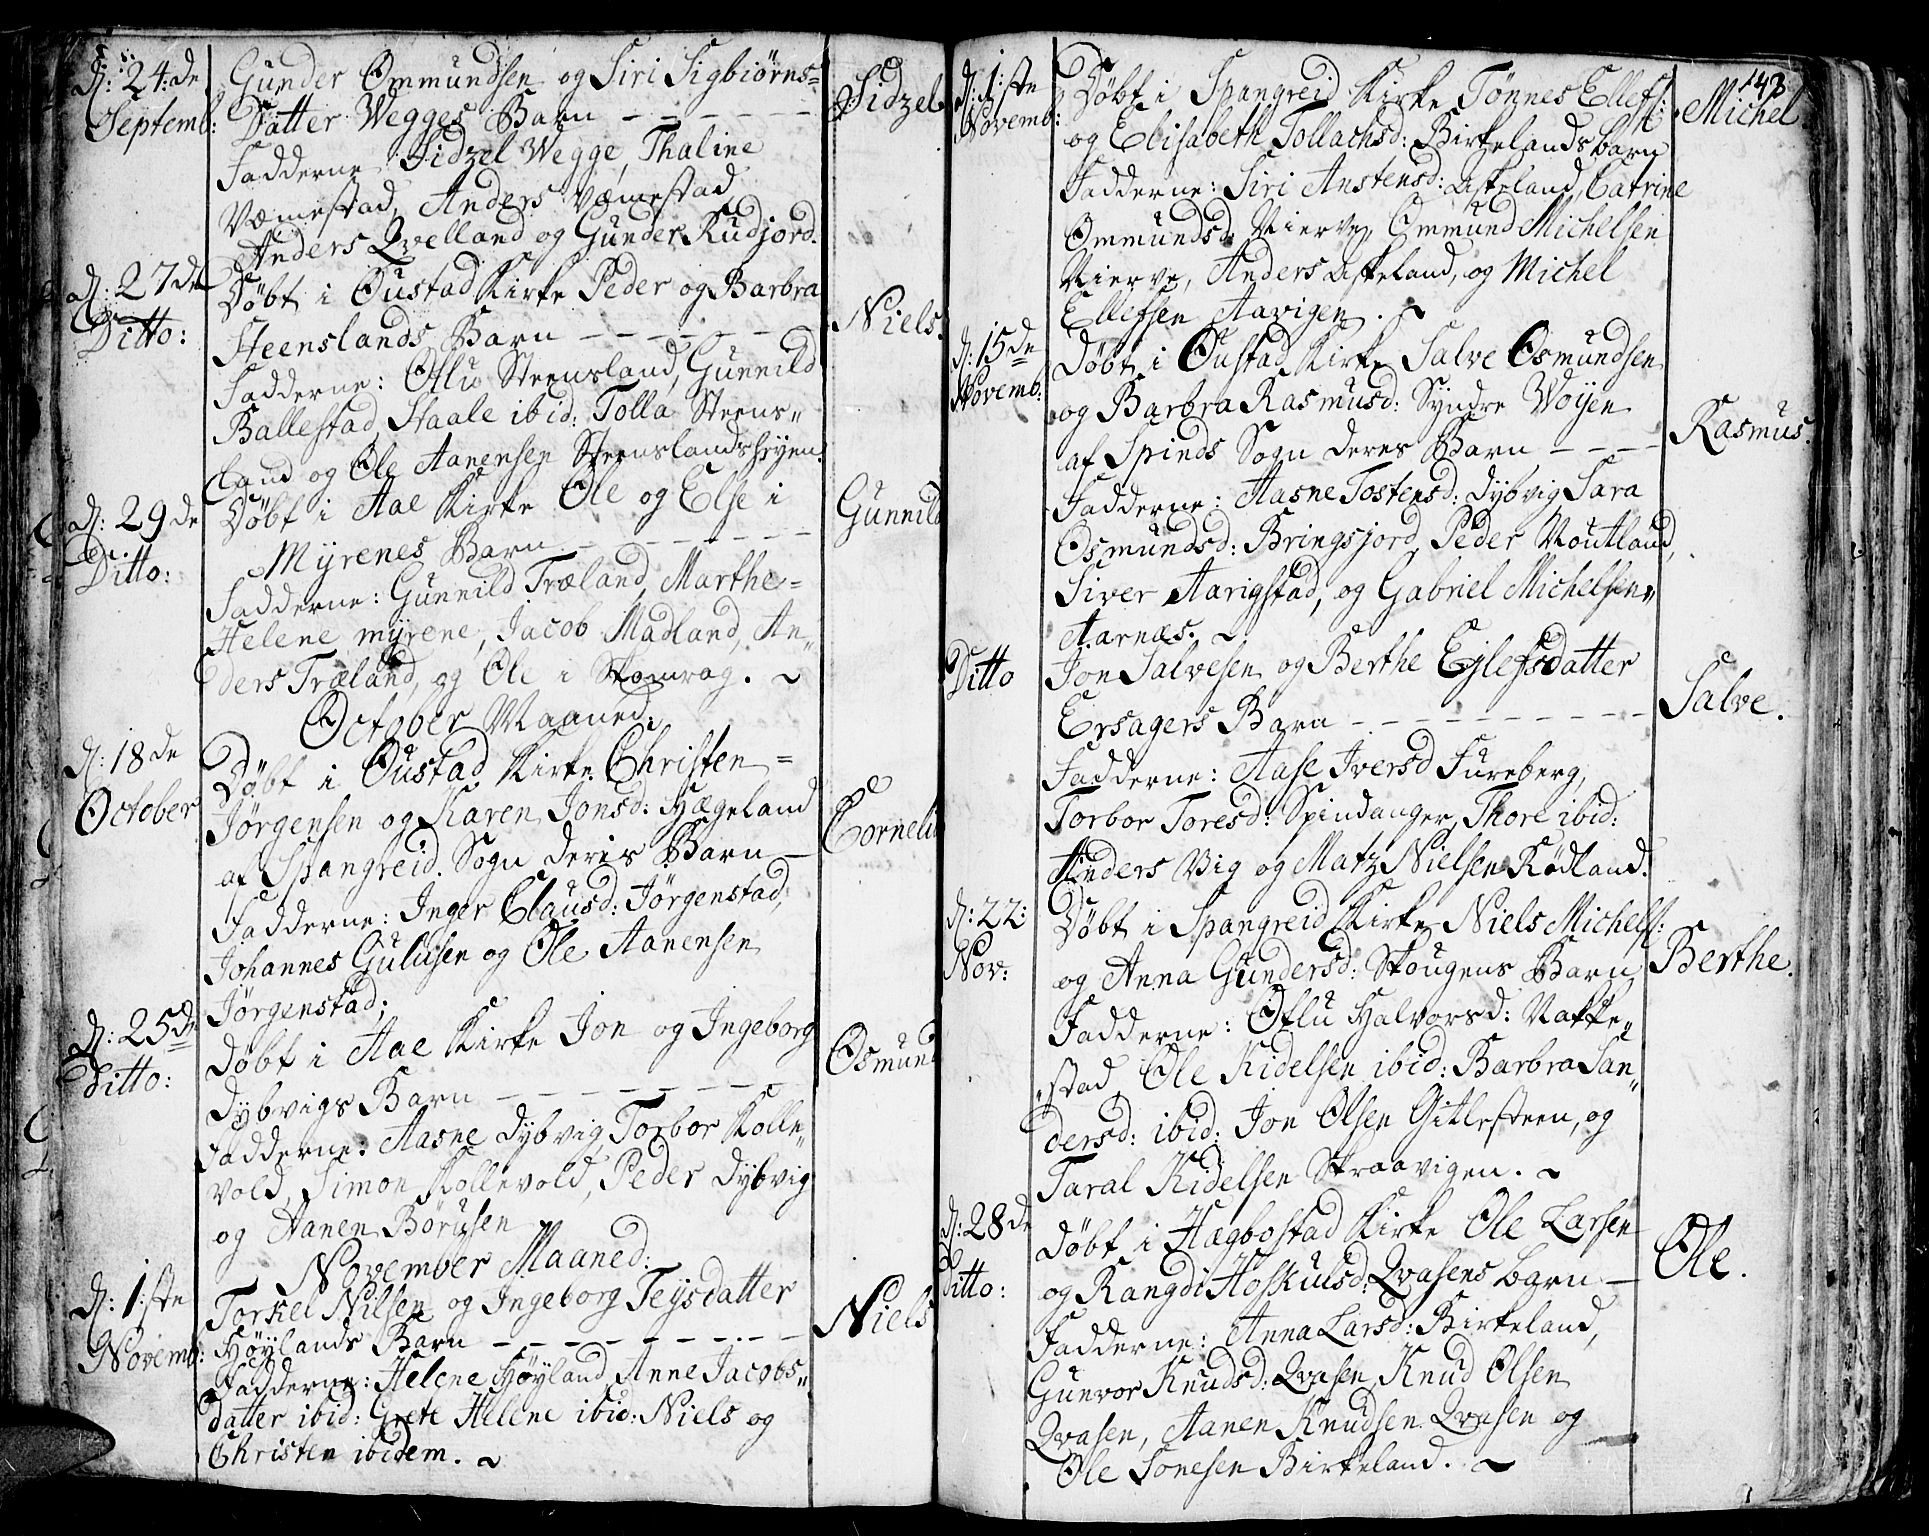 d: 24:de
Septemb:
Gunder Ommundsen og Siri Sigbiørns=
Datter Wegges Barn
Sidzel
Fadderne Sidzel Wegge, Thaline
Væmestad, Anders Væmestad
Anders Qvelland og Gunder Rudjord.
d: 27de
Ditto:
Døbt i Oustad Kirke Peder og Barbra
Steenslands Barn
Niels.
Fadderne: Ollu Steensland, Gunnild
Ballestad Staale ibid: Tolla Steens„
land og Ole Aanensen
d: 29de
Ditto:
Døbt i Aae Kirke Ole og Else i
Myrenes Barn
Gunnild
Fadderne: Gunnild Træland, Marthe=
Helene myrene, Jacob Madland, An„
ders Træland, og Ole i
October Maaned:
d: 18de
October
Døbt i Oustad Kirke Christen=
Jørgensen og Karen Jonsd: Hægeland
af Spangreid Sogn deris Barn
Corneli
Fadderne: Inger Clausd: Jørgenstad,
Johannes Gulusen og Ole Aanensen
Jørgenstad;
d: 25de
Ditto:
Døbt i Aae Kirke Jon og Ingeborg
Dybvigs Barn
Osmund
Fadderne: Aasne Dybvig, Torbor Kolle„
vold, Simon Kollevold, Peder Dybvig
og Aanen Børusen
November Maaned:
d: 1:ste
Novemb:
Torkel Nilsen og Ingeborg Teysdatter
Høylands Barn
Niels
Fadderne: Helene Høyland, Anne Jacobs„
datter ibid: Grete Helene ibid: Niels og
Christen ibidem.
143
d: 1:ste
Novemb:
Døbt i Spangreid Kirke Tønnes Ellefs:
og Elisabeth Tollachsd: Birkelands barn
Michel
Fadderne: Siri Anstensd: Askeland, Catrine
Ommundsd: Vierve, Ommund Michelsen
Vierve, Anders Askeland, og Michel
Ellefsen Aavigen.
d: 15de
Novemb:
Døbt i Oustad Kirke Salve Osmundsen
og Barbra Rasmusd: Syndre Woyen
af Spinds Sogn deres Barn
Rasmus.
Fadderne: Aasne Tostensd: Dybvig Sara
Osmundsd: Bringsjord, Peder Voutland,
Siver Aarigstad, og Gabriel Michelsen„
Aarnæs.
Ditto
Jon Salvesen og Berthe Ejlefsdatter
Ersagers Barn
Salve.
Fadderne: Aase Iversd Fureberg,
Torbor Toresd: Spindanger, Thore ibid:
Anders Vig og Matz Nielsen Rødland.
d: 22:
Nov:
Døbt i Spangreid Kirke Niels Michels:
og Anna Gundersd: Skougens Barn
Berthe.
Fadderne: Ollu Halvorsd: Vatte„
stad, Ole Kidelsen ibid: Barbra San„
dersd: ibid: Jon Olsen Gitlesteen, og
Taral Kidelsen Straavigen.
d: 28de
Ditto:
Døbt i Hægbostad Kirke Ole Larsen
og Rangdi Hoskulsd: Qvasens barn
Ole.
Fadderne: Anna Larsd: Birkeland,
Gunvor Knudsd: Qvasen, Knud Olsen
Qvasen, Aanen Knudsen Qvasen og
Ole Tonesen Birkeland.